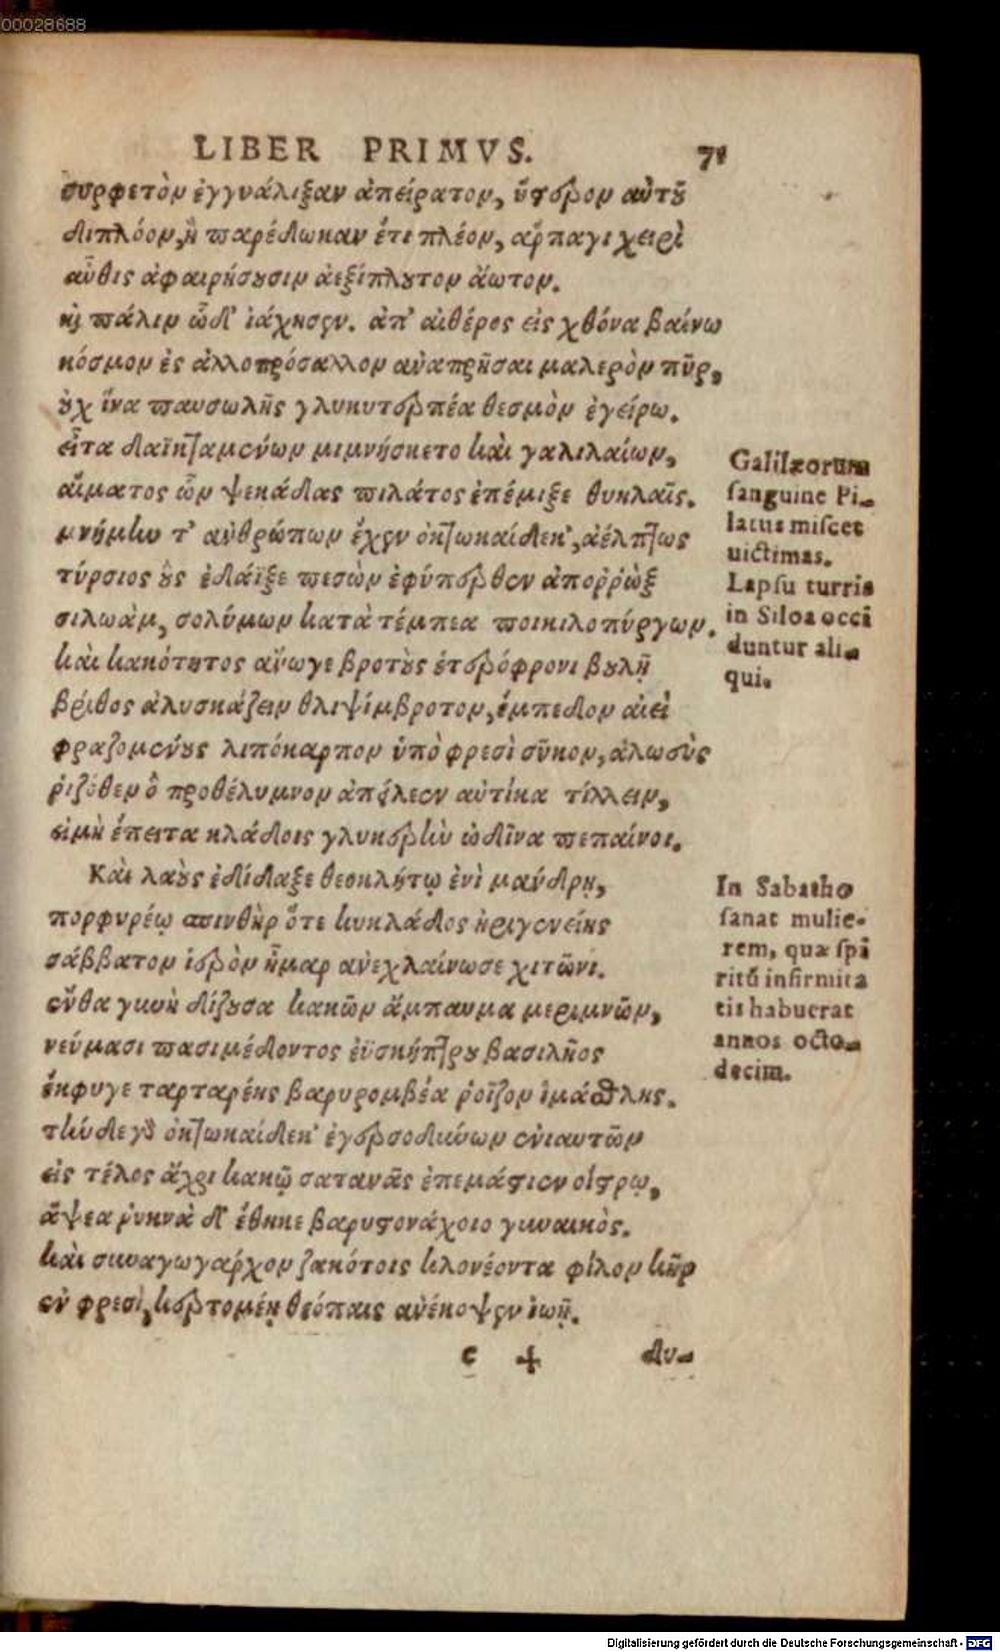 00028688
LIBER PRIMVS. 71
συρφετὸν ἐγγυάλιξαν ἀπείρατον, ὕστερον αὐτοῦ
διπλόον, ἢ παρέδωκαν ἔτι πλέον, ἅρπαγι χειρὶ
αὖθις ἀφαιρήσουσιν ἀεξίπλουτον ἄωτον.
καὶ πάλιν ὧδ' ἰάχησεν. ἀπ' αἰθέρος εἰς χθόνα βαίνω
κόσμον ἐς ἀλλοπρόσαλλον ἀναπρῆσαι μαλερὸν πῦρ,
οὐχ ἵνα παυσωλῆς γλυκυτερπέα θεσμὸν ἐγείρω.
εἶτα δαϊκταμένων μιμνήσκετο καὶ γαλιλαίων,
αἵματος ὧν ψεκάδας πιλάτος ἐπέμιξε θυηλαῖς.
μνήμην τ' ἀνθρώπων ἔχεν ὀκτωκαίδεκ', ἀέλπτως
τύρσιος οὓς ἐδάϊξε πεσὼν ἐφύπερθεν ἀπορρὼξ
σιλωὰμ, σολύμων κατὰ τέμπεα ποικιλοπύργων.
καὶ κακότητος ἄνωγε βροτοὺς ἑτερόφρονι βουλῇ
βρίθος ἀλυσκάζειν θλιψίμβροτον, ἔμπεδον αἰεὶ
φραζομένους λιπόκαρπον ὑπὸ φρεσὶ σῦκον, ἀλωεὺς
ῥιζόθεν ὃ προθέλυμνον ἀπείλεεν αὐτίκα τίλλειν,
εἰμὴ ἔπειτα κλάδοις γλυκερὴν ὠδῖνα πεπαίνοι.
Καὶ λαοὺς ἐδίδαξε θεοκλήτῳ ἐνὶ μάνδρῃ,
πορφυρέῳ σπινθὴρ ὅτε κυκλάδος ἠριγενείης
σάββατον ἱερὸν ἦμαρ ἀνεχλαίνωσε χιτῶνι.
ἔνθα γυνὴ δίζουσα κακῶν ἄμπαυμα μεριμνῶν,
νεύμασι πασιμέδοντος ἐϋσκήπτρου βασιλῆος
ἔκφυγε ταρταρέης βαρυρομβέα ῥοῖζον ἱμάσθλης.
τὴν δε γδ ὀκτωκαίδεκ' ἐγερσοδινύων ἐνιαυτῶν
εἰς τέλος ἄχρι κακῷ σατανᾶς ἐπεμάστιεν οἴστρῳ,
ἅψεα ῥυκνὰ δ' ἔθηκε βαρυστονάχοιο γυναικὸς.
καὶ συναγωγάρχου ζακότοις κλονέοντα φίλον κῆρ
ἐν φρεσὶ, κερτομέῃ θεόπαις ἀνέκοψεν ἰωῇ.
c 4 δυ-
Galilæorum
sanguine Pi-
latus miscet
uictimas.
Lapsu turris
in Siloa occi
duntur ali-
qui.
In Sabatho
sanat mulie-
rem, quæ spi
ritũ infirmita
tis habuerat
annos octo-
decim.
Digitalisierung gefördert durch die Deutsche Forschungsgemeinschaft - DFG